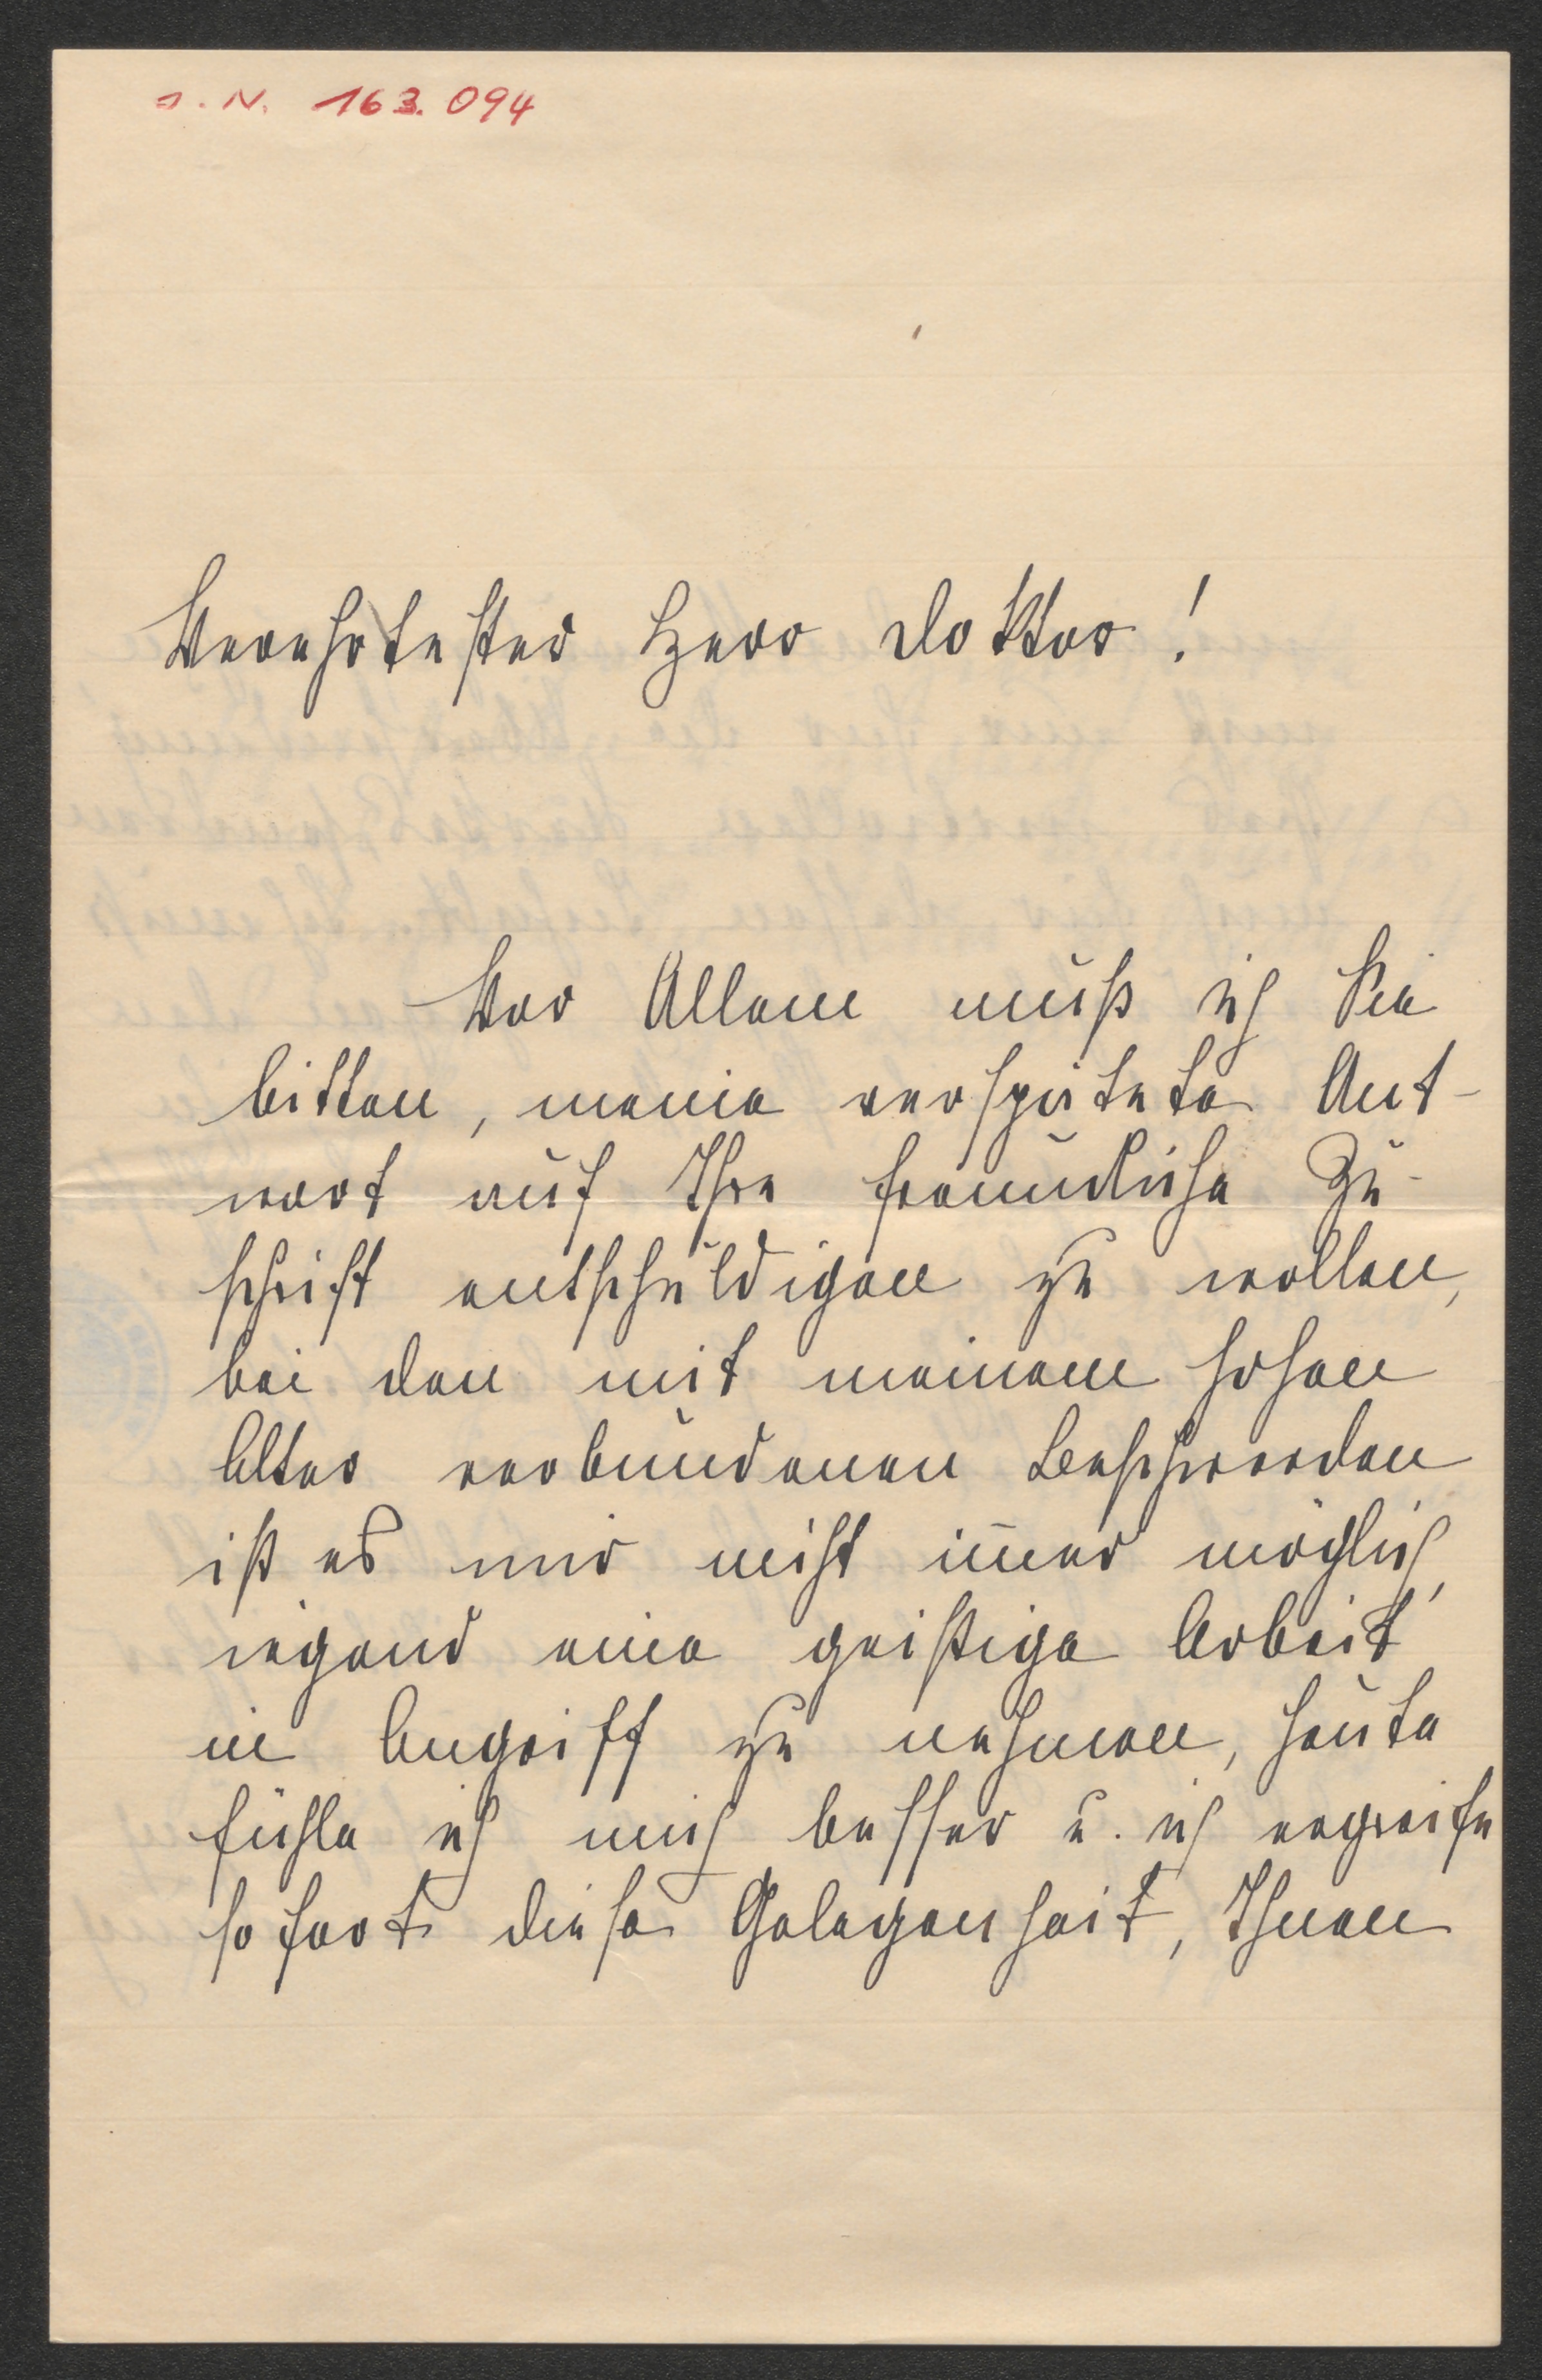 I. N. 163.094
Verehrtester Herr Doktor!
Vor Allem muß ich Sie
bitten, meine verspätete Ant-
wort auf Ihre freundliche Zu-
schrift entschuldigen zu wollen,
bei den mit meinem hohen
Alter verbundenen Beschwerden
ist es mir nicht im̅er möglich,
irgend eine geistige Arbeit
in Angriff zu nehmen, heute
fühle ich mich besser u. ich ergreife
sofort diese Gelegenheit, Ihnen